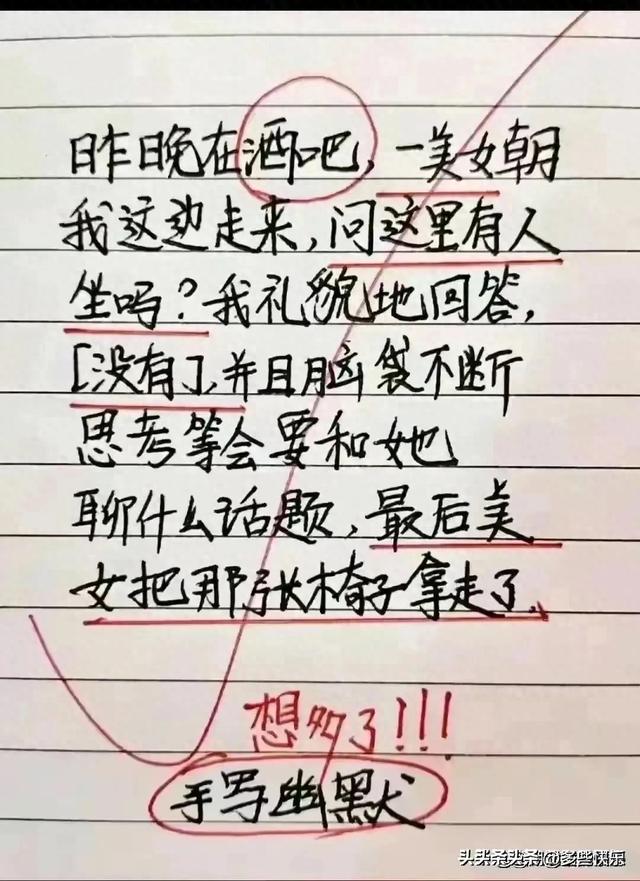 昨晚在酒吧,一美女朝
我这边走来,问这里有人
坐吗?我礼貌地回答,
[没有],并且脑袋不断
思考等会要和她
聊什么话题,最后美
女把那张椅子拿走了.
想多了!!!
手写幽默